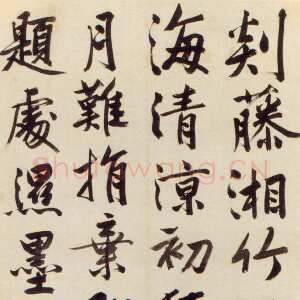 剡藤湘竹
海清涼初
月難指棄
題處濕墨
Shufawang.CN